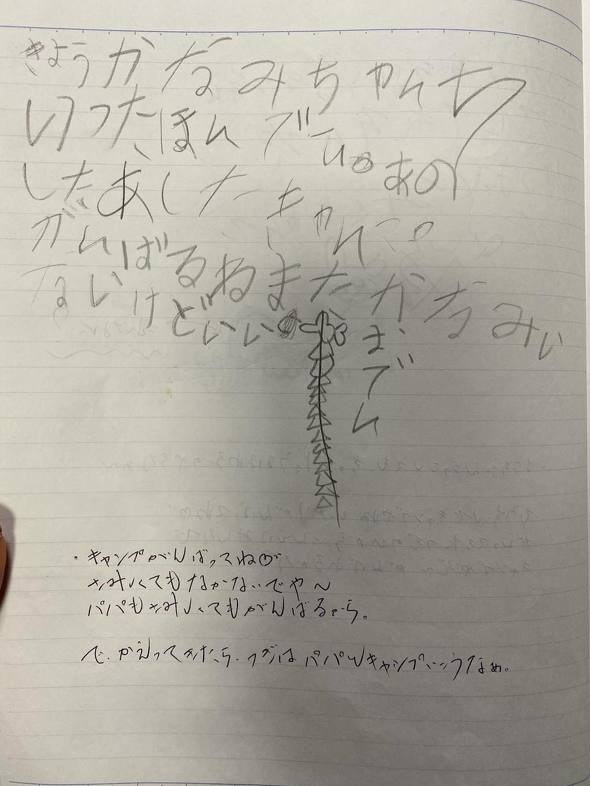 きょうかなみちゃんち
いったほんで
い。あの
したあしたキャん
がんばるねまたかなみい
ないけどいい
までん
・キャンプがんばってねの
さみしくてもなかないでや〜
パパもさみしくてもがんばるから。
で、かえってきたら、つぎはパパんキャンプいこうなぁ。